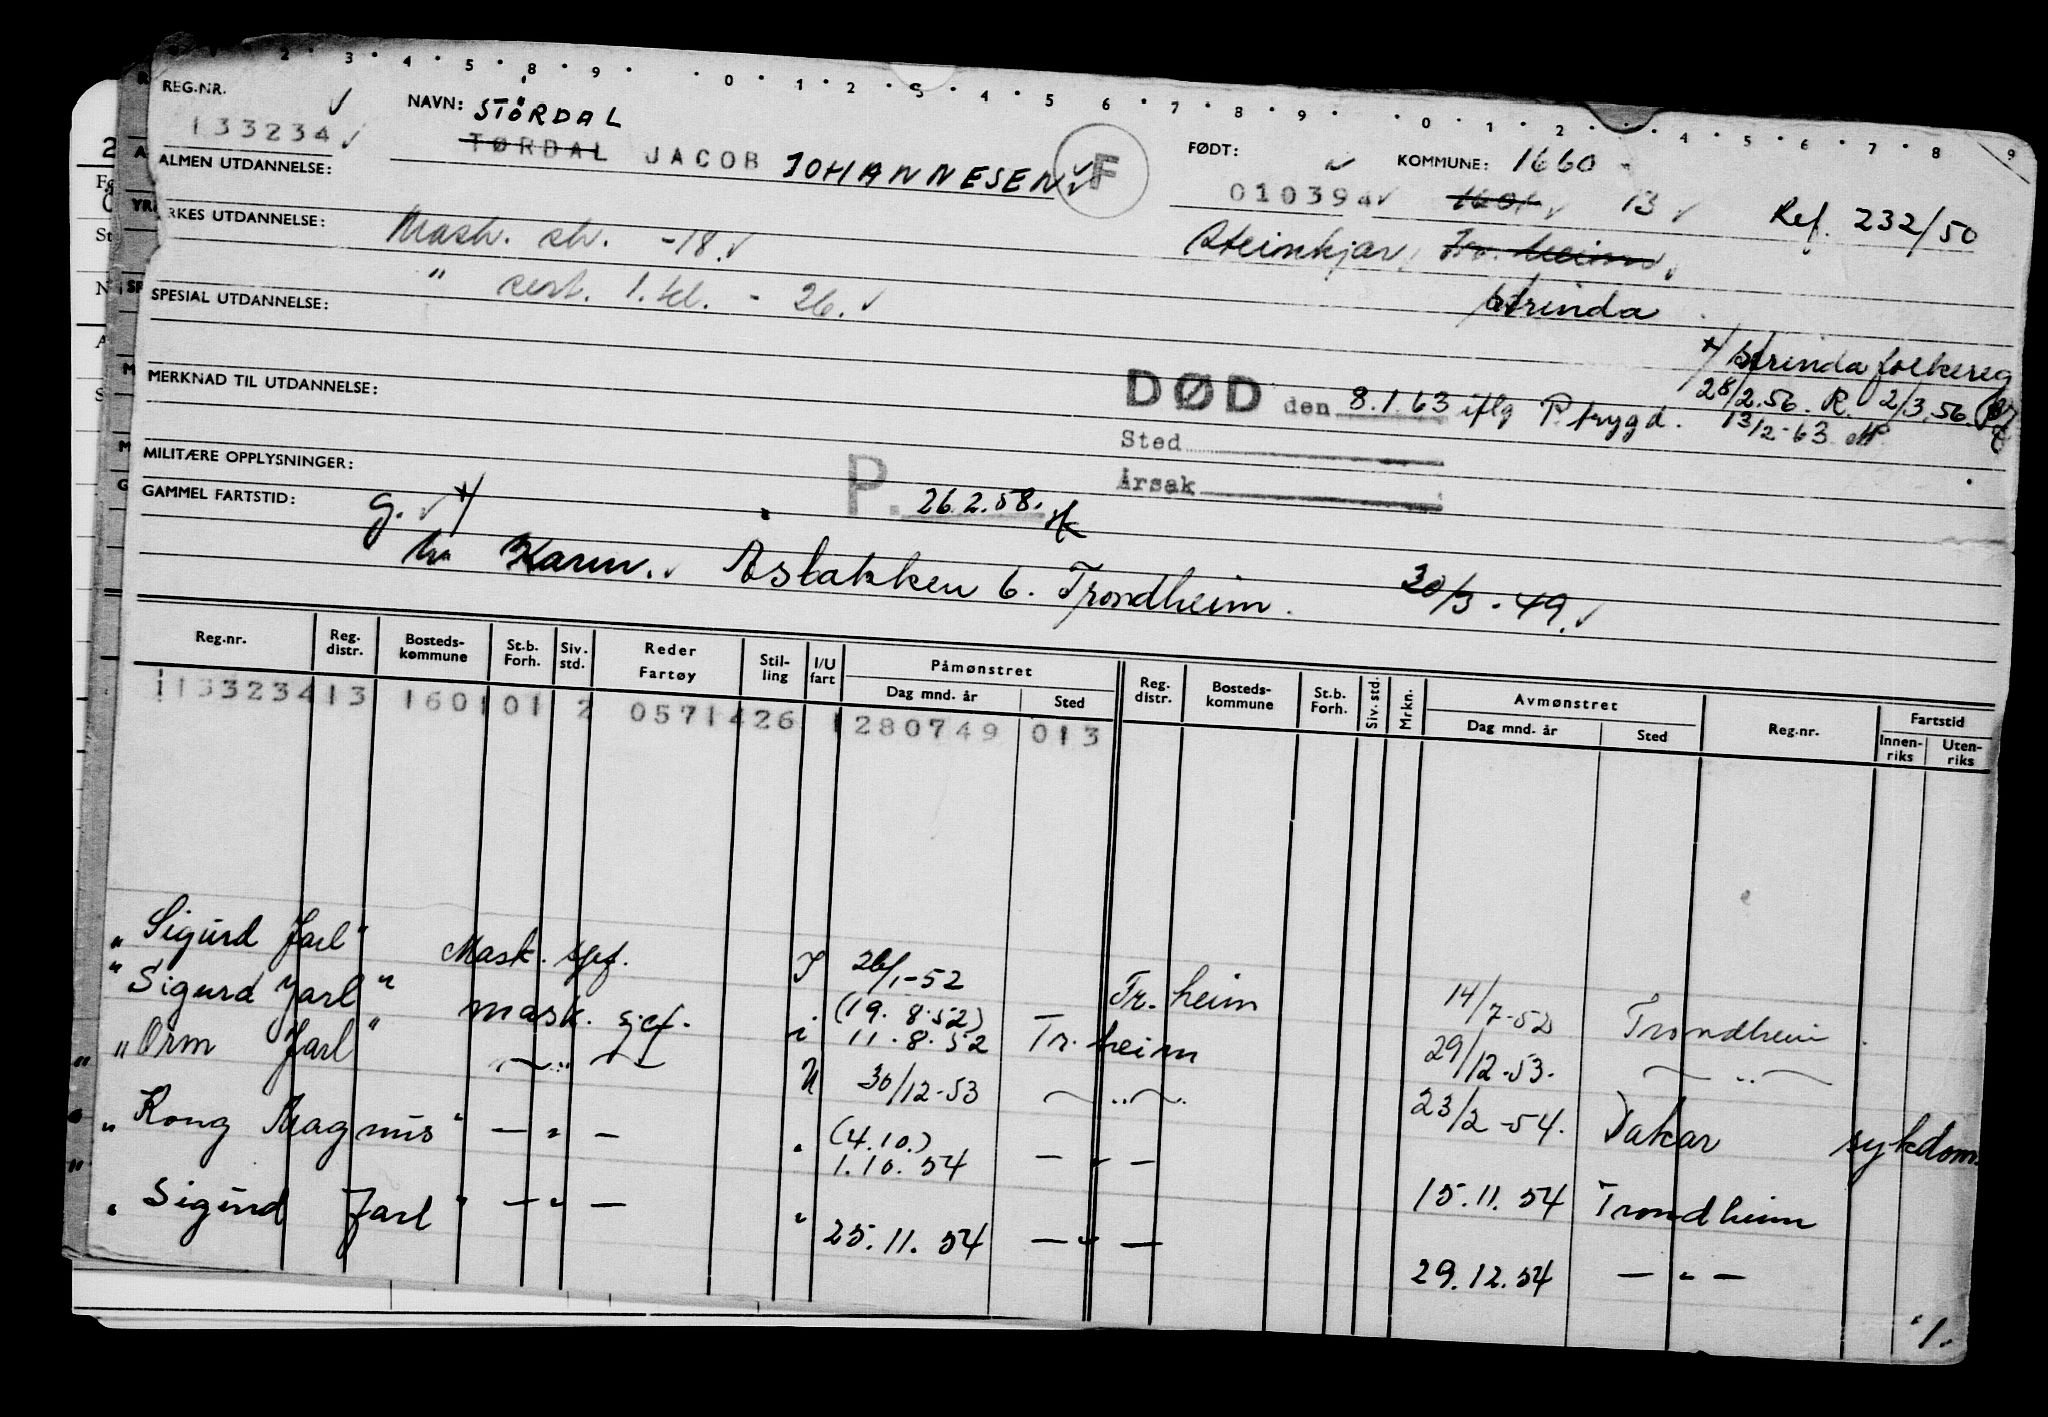 2 3 4 5 8 9 0 1 2 3 4 5 6 7 8 9 0 1 2 4 5 6 7 8 9
REG.NR. NAVN: STÖRDAL
133234 TØRDAL JACOB JOHANNESEN F FØDT: KOMMUNE: 1660
010394 1601 13 Ref. 232/50
ALMEN UTDANNELSE:
YRKES UTDANNELSE: Mask. sk. -18. Steinkjær, Tr.heim
" cert. 1. kl. - 26. Strinda
SPESIAL UTDANNELSE:
+/ Strinda folkereg
28/2.56. R. 2/3.56.
MERKNAD TIL UTDANNELSE: DØD den 8.1.63 iflg P. trygd. 13/2-63
Sted
MILITÆRE OPPLYSNINGER: Årsak
GAMMEL FARTSTID: g. +/ P. 26.2.58.
Karin. Åsbakken 6. Trondheim. 30/3-49.
Reg.nr. Reg. distr. Bosteds-kommune St.b. Forh. Siv. std. Reder Fartøy Stil-ling I/U fart Påmønstret Dag mnd. år Sted Reg. distr. Bosteds-kommune St.b. Forh. Siv. std. Mrkn. Avmønstret Dag mnd. år Sted Reg.nr. Fartstid Innen-riks Uten-riks
1133234 13 1601 01 2 0571426 1 280749 013
"Sigurd Jarl" Mask. sjef. I 26/1-52 Tr.heim 14/7-52 Trondheim
"Sigurd Jarl" mask. sjef. i (19.8.52) 11.8.52 Tr.heim 29/12-53. — " —
"Orm Jarl" — " — U 30/12-53 — " — 23/2-54. Dakar sykdom.
"Kong Magnus" — " — " (4.10.) 1.10.54 — " — 15.11.54 Trondheim
"Sigurd Jarl" — " — " 25.11.54 — " — 29.12.54 — " —
1.